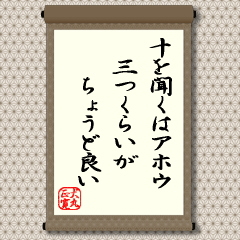 十を聞くはアホウ
三つくらいが
ちょうど良い